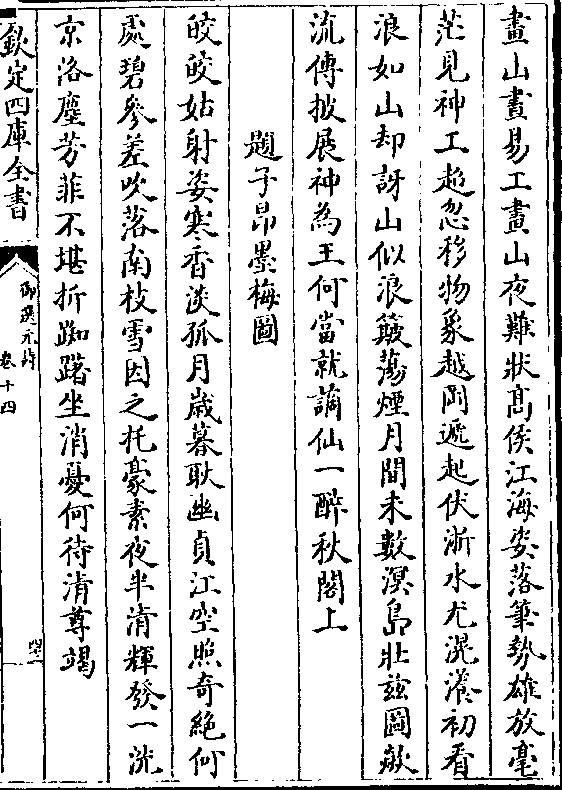 畫山晝易工畫山夜難狀高侯江海姿落筆勢雄放毫
茫見神工超忽移物象越岡遞起伏浙水尤滉瀁初看
浪如山却訝山似浪簸蕩煙月間未數溟島壯兹圖能
流傳披展神為王何當就謫仙一醉秋閣上
題子昂墨梅圖
皎皎姑射姿寒香淡孤月歲暮耿幽貞江空照奇絕何
處碧參差吹落南枝雪因之托豪素夜半清輝發一洗
京洛塵芳菲不堪折踟躇坐消憂何待清尊竭
欽定四庫全書
御選元詩
卷十四